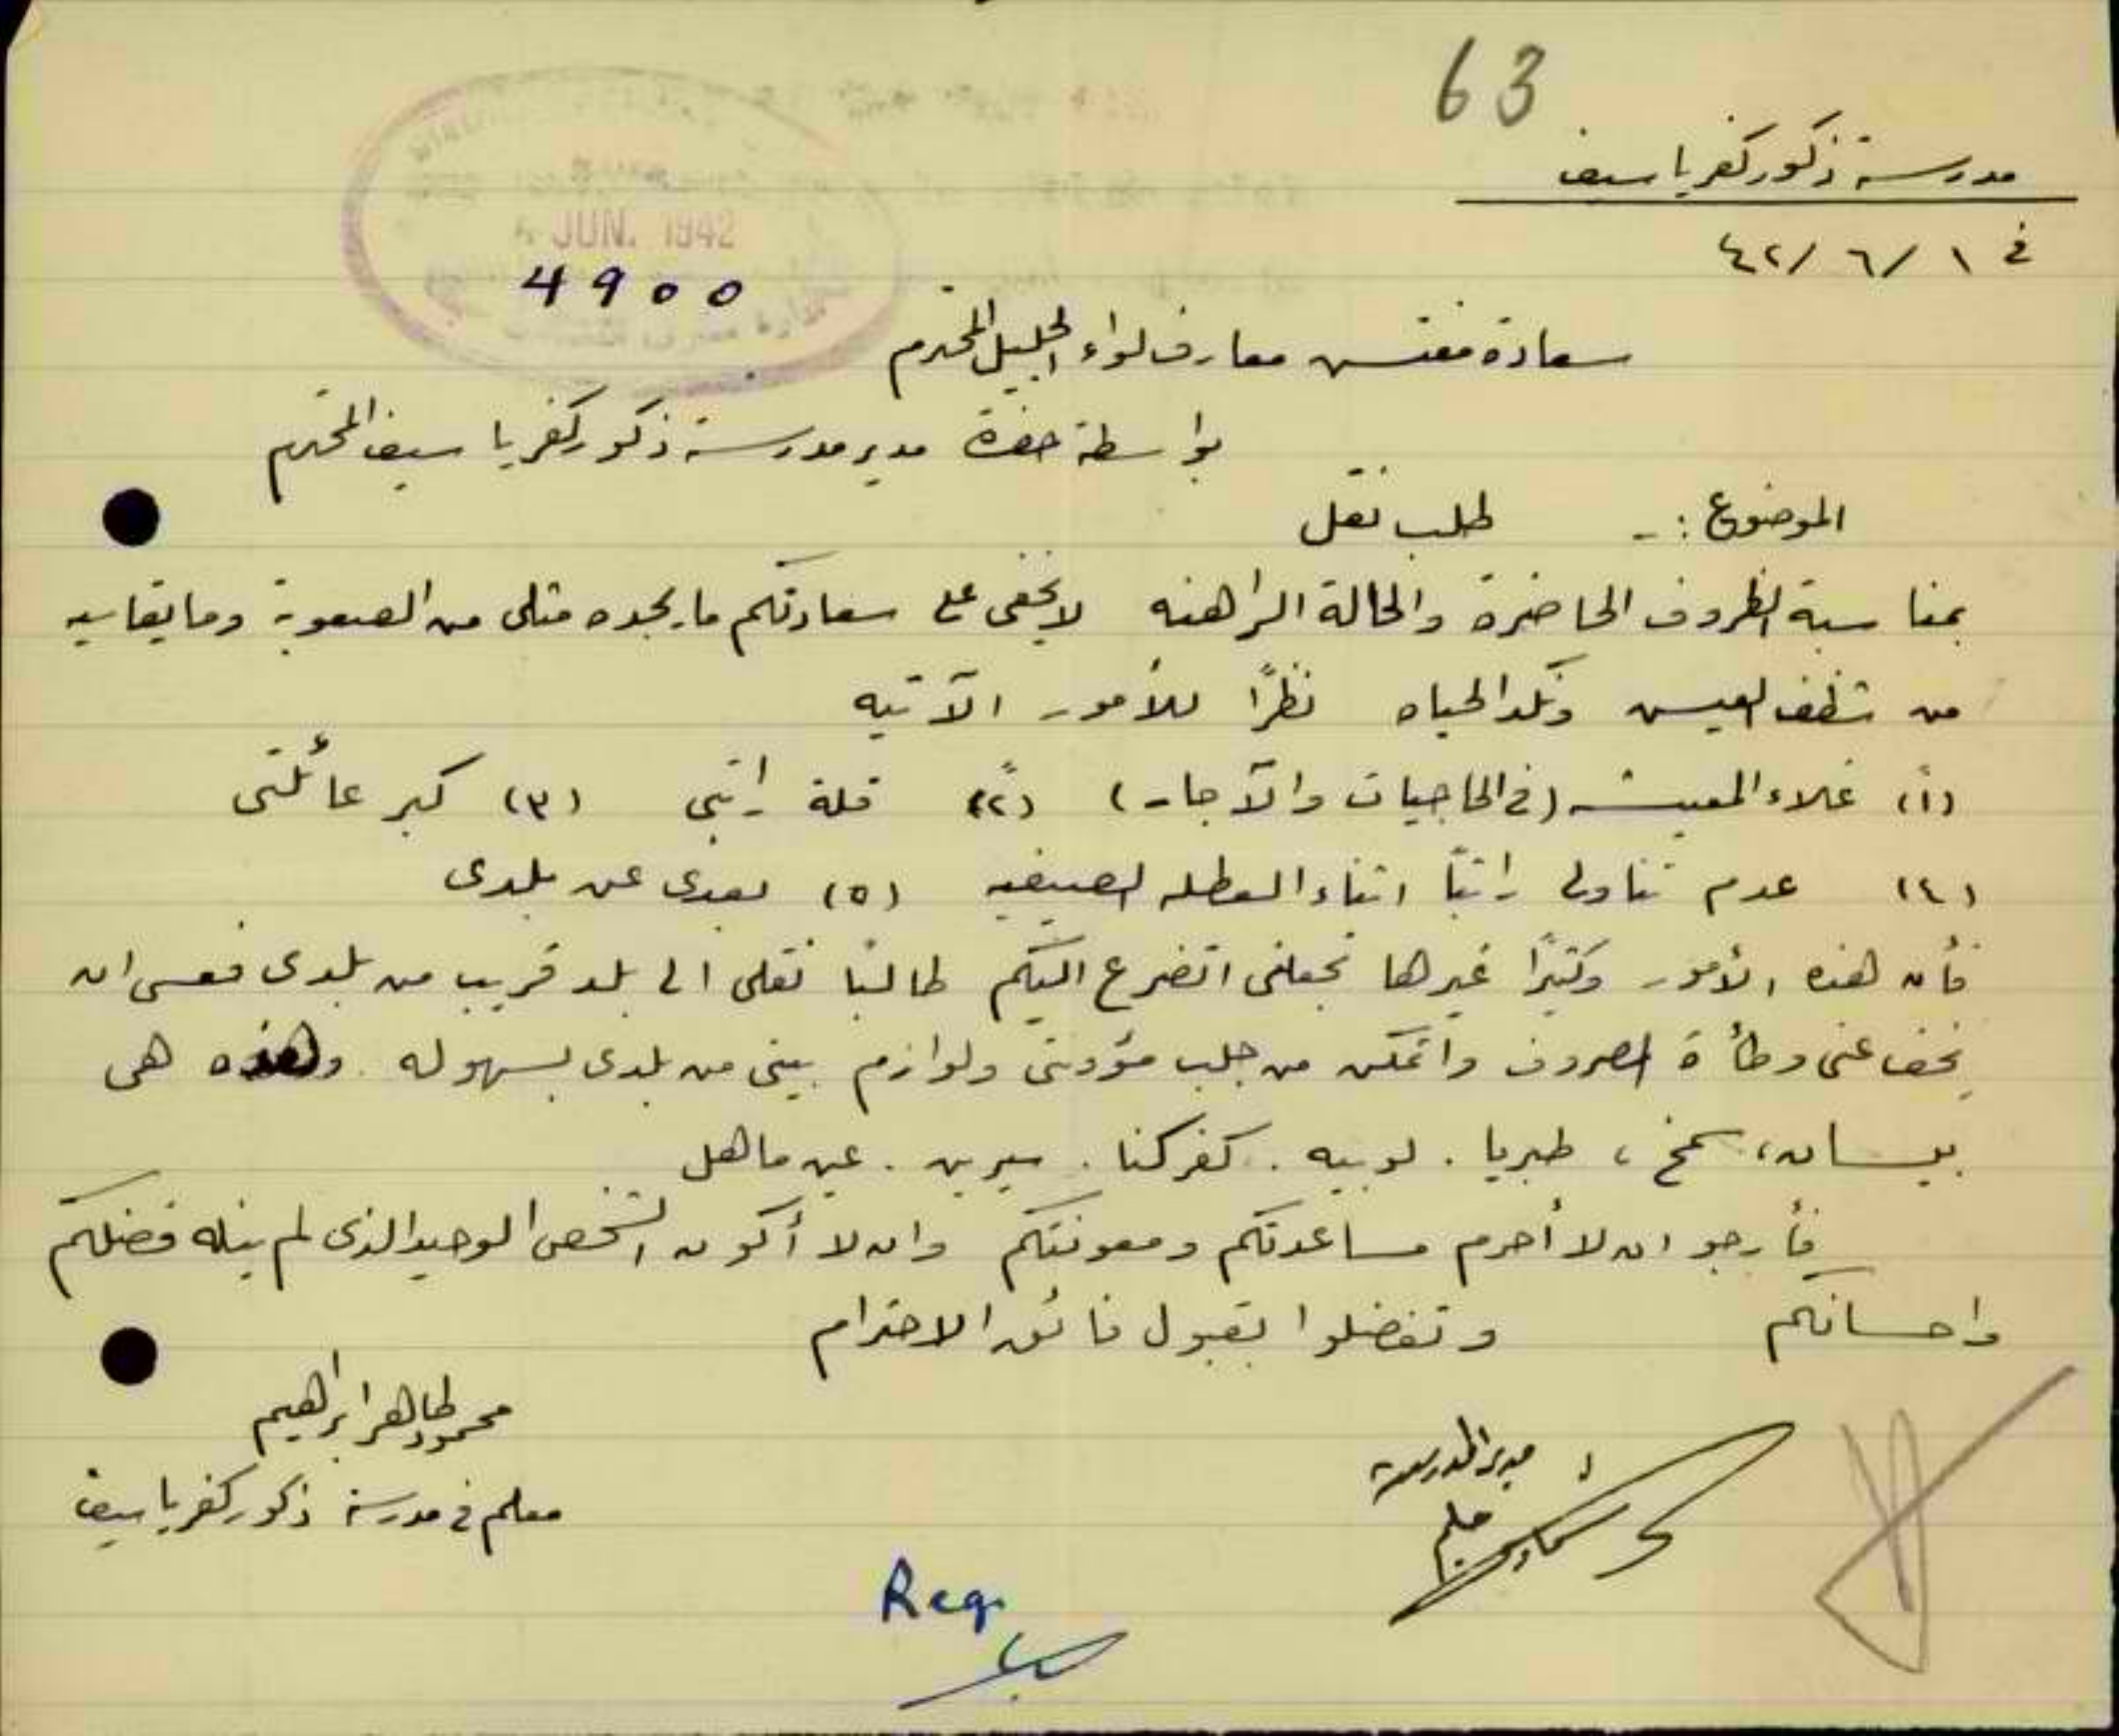 63
مدرسة ذكور كفرياسيف
في ١/ ٦/ ٤٢
JUN. 1942
4900
سعادة مفتش معارف لواء الجليل المحترم
بواسطة حضرة مدير مدرسة ذكور كفرياسيف المحترم
الموضوع :- طلب نقل
بمناسبة الظروف الحاضرة والحالة الراهنه لا يخفى على سعادتكم ما يجده مثلى من الصعوبة وما يقاسيه
من شظف العيش ونكد الحياه نظرًا للأمور الآتيه
(١) غلاء المعيشه (في الحاجيات والآجار) (٢) قلة راتبي (٣) كبر عائلتى
(٤) عدم تناولى راتبًا اثناء العطله الصيفيه (٥) بعدى عن بلدى
فأن هذه الأمور وكثيرًا غيرها تجعلنى اتضرع اليكم طالبًا نقلى الى بلد قريب من بلدى فعسى ان
يخف عنى وطأة الصروف واتمكن من جلب مؤونتى ولوازم بيتى من بلدى بسهوله . وهذه هى
بيسان، سمخ ، طبريا . لوبيه . كفركنا . سيرين . عين ماهل
فأرجو ان لا أحرم مساعدتكم ومعونتكم وان لا أكون الشخص الوحيد الذى لم ينله فضلكم
واحسانكم وتفضلوا بقبول فائق الاحترام
محمود طاهر ابراهيم
معلم في مدرسة ذكور كفرياسيف
مدير المدرسة
Reg.